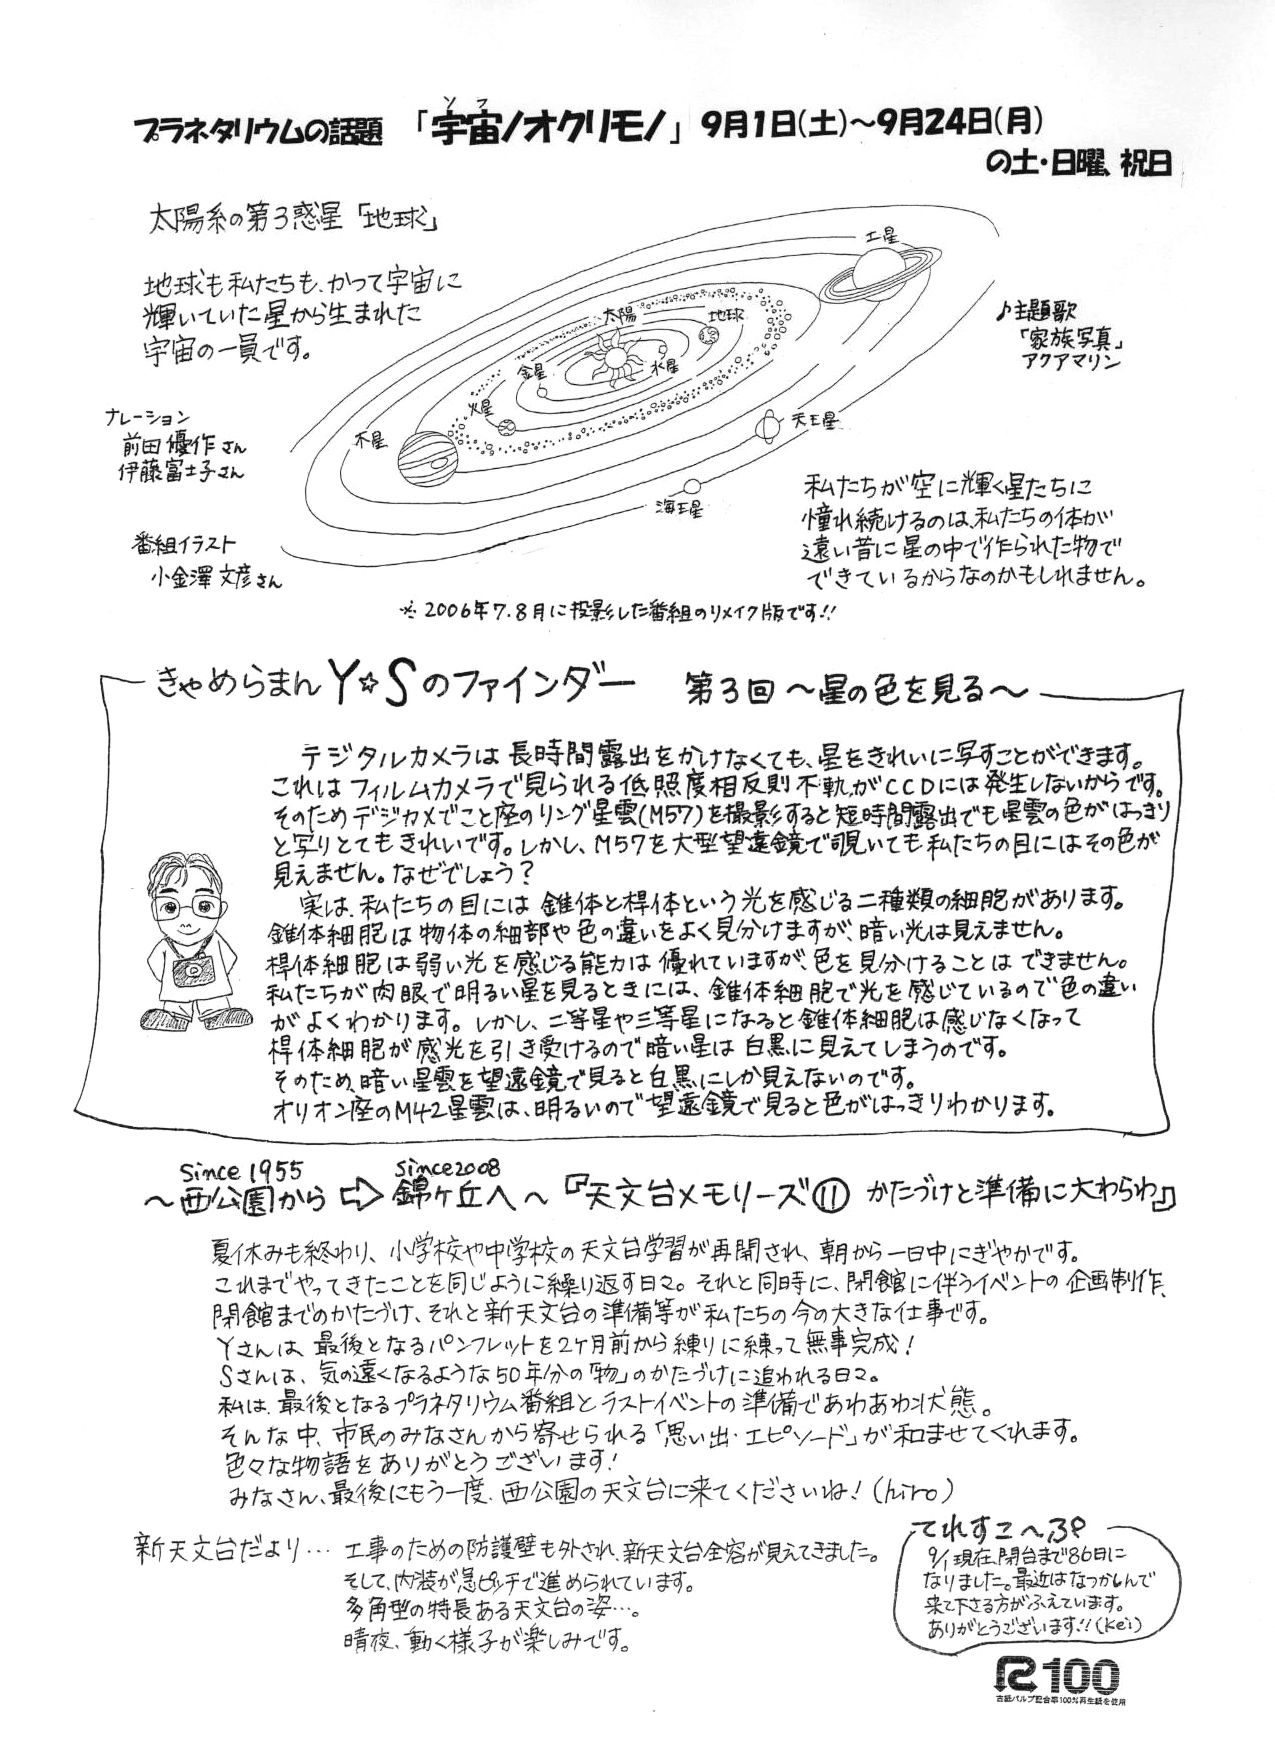 プラネタリウムの話題 「宇宙ノオクリモノ」 9月1日(土)〜9月24日(月)
ソラ
の土・日曜、祝日
太陽系の第3惑星「地球」
地球も私たちも、かつて宇宙に
輝いていた星から生まれた
宇宙の一員です。
土星
太陽
地球
金星
水星
火星
木星
天王星
海王星
♪主題歌
「家族写真」
アクアマリン
ナレーション
前田優作さん
伊藤富士子さん
番組イラスト
小金澤文彦さん
私たちが空に輝く星たちに
憧れ続けるのは、私たちの体が
遠い昔に星の中で作られた物で
できているからなのかもしれません。
※2006年7.8月に投影した番組のリメイク版です!!
きゃめらまんY☆Sのファインダー 第3回 〜星の色を見る〜
デジタルカメラは長時間露出をかけなくても、星をきれいに写すことができます。
これはフィルムカメラで見られる低照度相反則不軌がCCDには発生しないからです。
そのためデジカメでこと座のリング星雲(M57)を撮影すると短時間露出でも星雲の色がはっきり
と写りとてもきれいです。しかし、M57を大型望遠鏡で覗いても私たちの目にはその色が
見えません。なぜでしょう?
実は、私たちの目には錐体と桿体という光を感じる二種類の細胞があります。
錐体細胞は物体の細部や色の違いをよく見分けますが、暗い光は見えません。
桿体細胞は弱い光を感じる能力は優れていますが、色を見分けることはできません。
私たちが肉眼で明るい星を見るときには、錐体細胞で光を感じているので色の違い
がよくわかります。しかし、二等星や三等星になると錐体細胞は感じなくなって
桿体細胞が感光を引き受けるので暗い星は白黒に見えてしまうのです。
そのため、暗い星雲を望遠鏡で見ると白黒にしか見えないのです。
オリオン座のM42星雲は、明るいので望遠鏡で見ると色がはっきりわかります。
since 1955 since2008
〜西公園から⇨錦ケ丘へ〜『天文台メモリーズ⑪ かたづけと準備に大わらわ』
夏休みも終わり、小学校や中学校の天文台学習が再開され、朝から一日中にぎやかです。
これまでやってきたことを同じように繰り返す日々。それと同時に、閉館に伴うイベントの企画制作、
閉館までのかたづけ、それと新天文台の準備等が私たちの今の大きな仕事です。
Yさんは、最後となるパンフレットを2ケ月前から練りに練って無事完成!
Sさんは、気の遠くなるような50年分の「物」のかたづけに追われる日々。
私は、最後となるプラネタリウム番組とラストイベントの準備であわあわ状態。
そんな中、市民のみなさんから寄せられる「思い出・エピソード」が和ませてくれます。
色々な物語をありがとうございます!
みなさん、最後にもう一度、西公園の天文台に来てくださいね!(hiro)
新天文台だより… 工事のための防護壁も外され、新天文台全容が見えてきました。
そして、内装が急ピッチで進められています。
多角型の特長ある天文台の姿…。
晴夜、動く様子が楽しみです。
てれすこへぷ
9/1現在、閉台まで86日に
なりました。最近はなつかしんで
来て下さる方がふえています。
ありがとうございます!!(kei)
R100
古紙パルプ配合率100%再生紙を使用